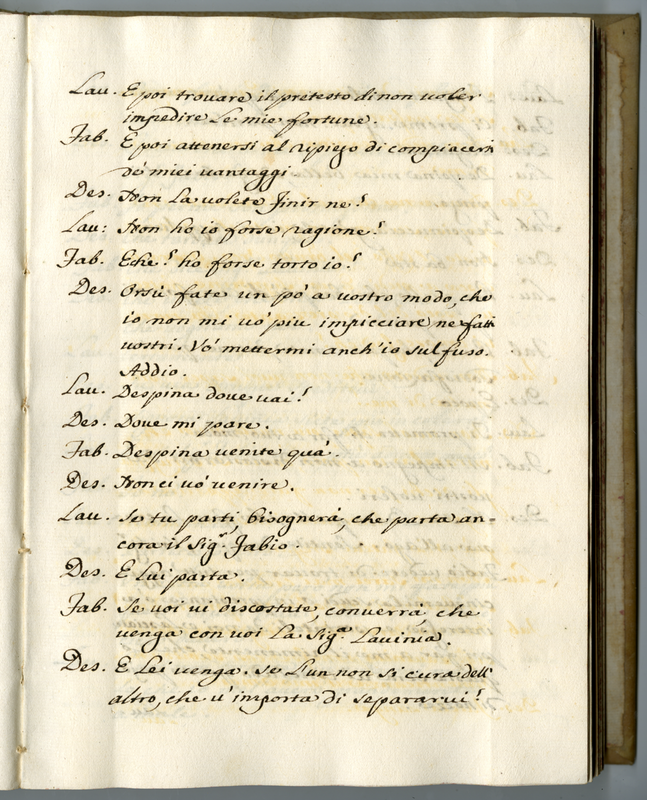 Lau. E poi trovare il pretesto di non voler
impedire le mie fortune.
Fab. E poi attenersi al ripiego di compiacersi
de' miei vantaggi
Des. Non la volete finir ne?
Lau: Non ho io forse ragione?
Fab. Eche? ho forse torto io?
Des. Orsù fate un pò a vostro modo, che
io non mi vò piu impicciare ne fatti
vostri. Vò mettermi anch'io sul fuso.
Addio.
Lau. Despina dove vai?
Des. Dove mi pare.
Fab. Despina venite quà.
Des. Non ci vò venire.
Lau. Se tu parti, bisognerà, che parta an-
cora il Sig.r Fabio.
Des. E lui parta.
Fab. Se voi vi discostate, converrà, che
venga con voi la Sig.a Lavinia.
Des. E Lei venga. se l'un non si cura dell'
altro, che v'importa di separarvi?